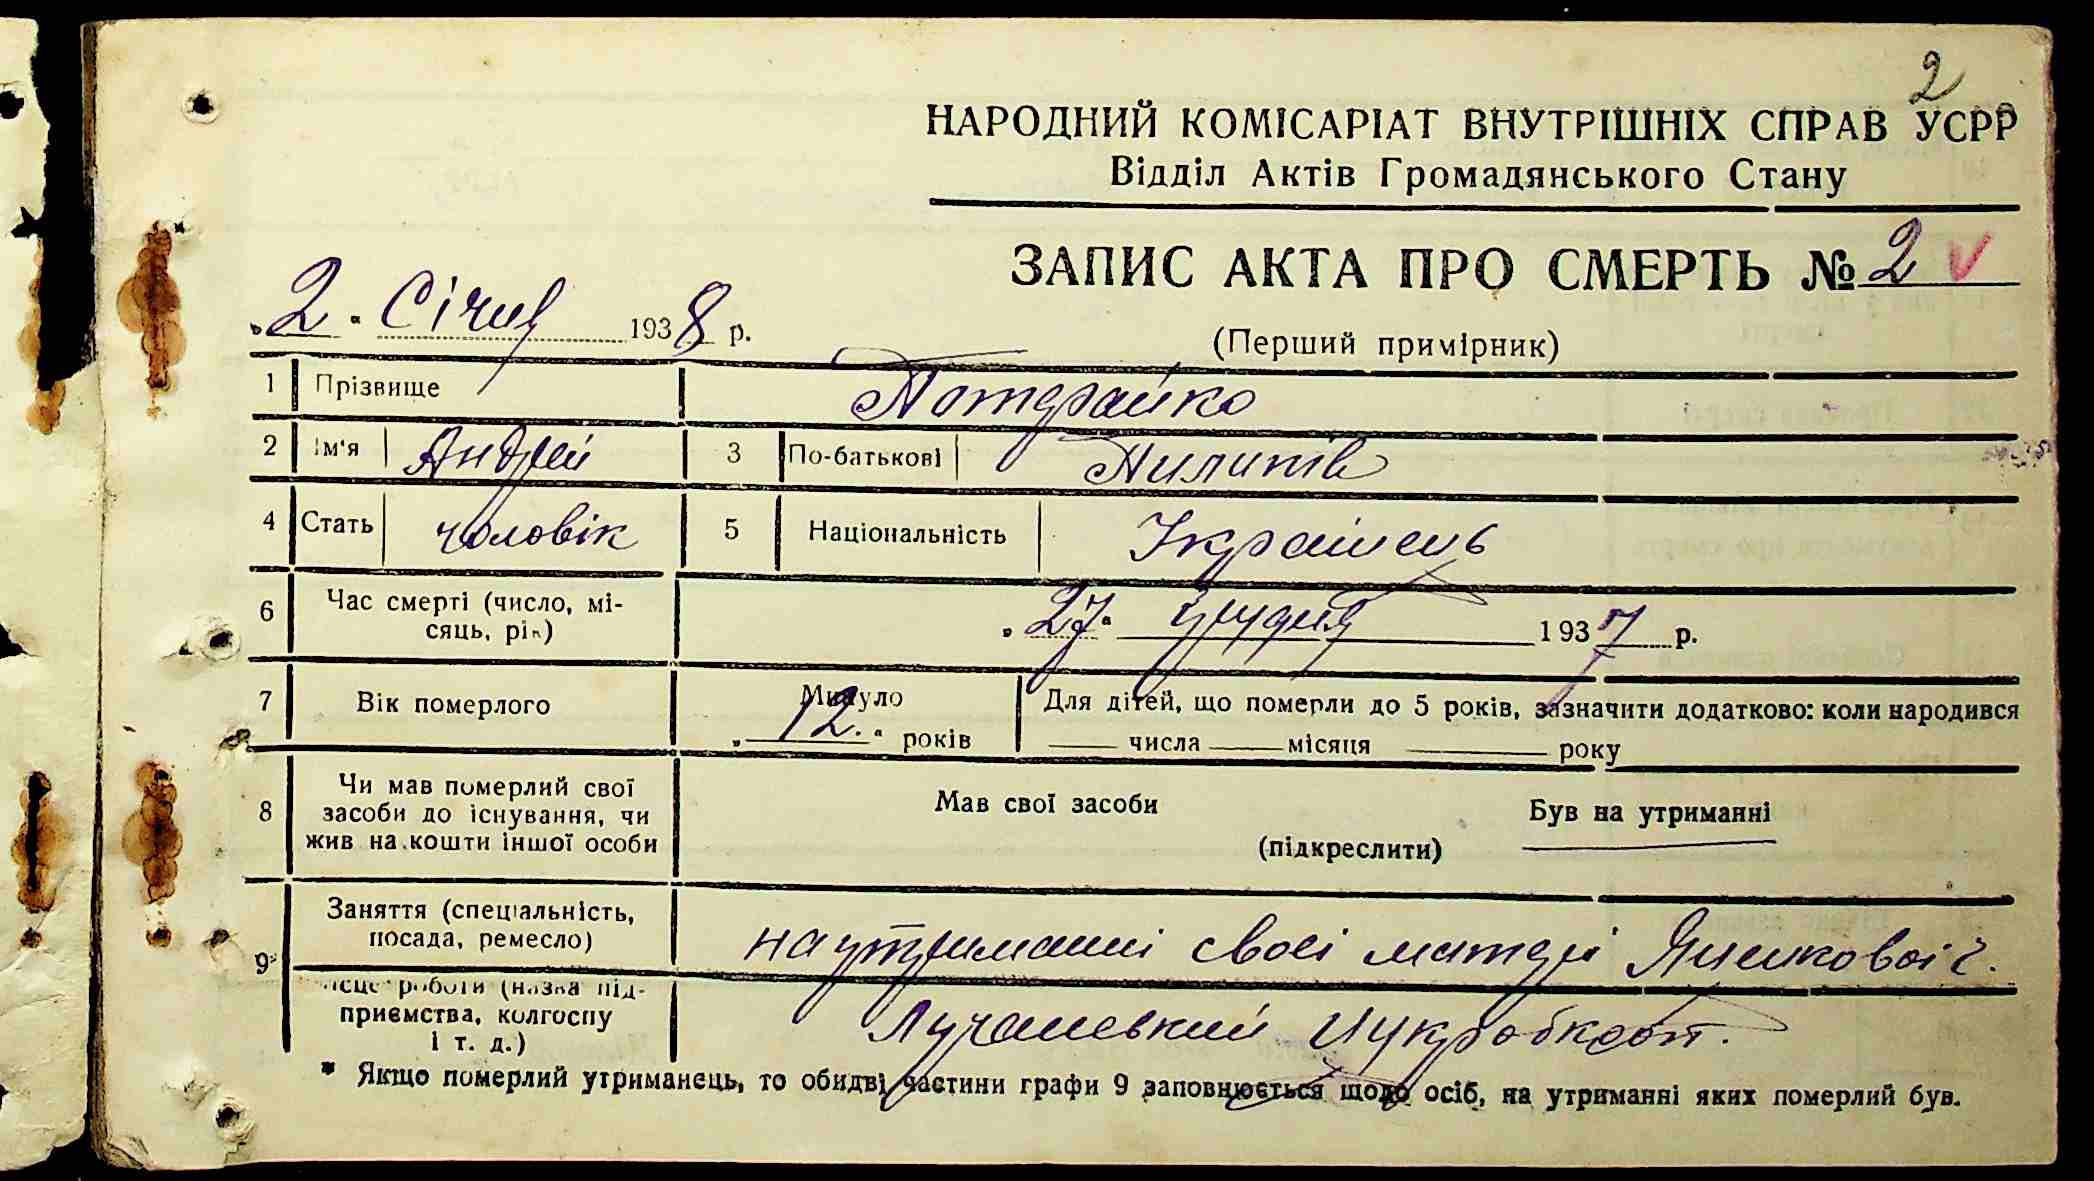 2
НАРОДНИЙ КОМІСАРІАТ ВНУТРІШНІХ СПРАВ УСРР
Відділ Актів Громадянського Стану
ЗАПИС АКТА ПРО СМЕРТЬ № 2 V
„2“ Січня 1938 р.
(Перший примірник)
1 Прізвище
2 Ім'я Андрей 3 По-батькові Пилипів
4 Стать чоловік 5 Національність Українець
6 Час смерті (число, мі-
сяць, рік) „27“ грудня 1937 р.
7 Вік померлого Минуло „12.“ років Для дітей, що померли до 5 років, зазначити додатково: коли народився
числа місяця року
8 Чи мав померлий свої
засоби до існування, чи
жив на кошти іншої особи
Мав свої засоби Був на утриманні
(підкреслити)
9* Заняття (спеціальність,
посада, ремесло) на утриманні своєі матері
Місце роботи (назва під-
приємства, колгоспу
і т. д.)
* Якщо померлий утриманець, то обидві частини графи 9 заповнюється щодо осіб, на утриманні яких померлий був.